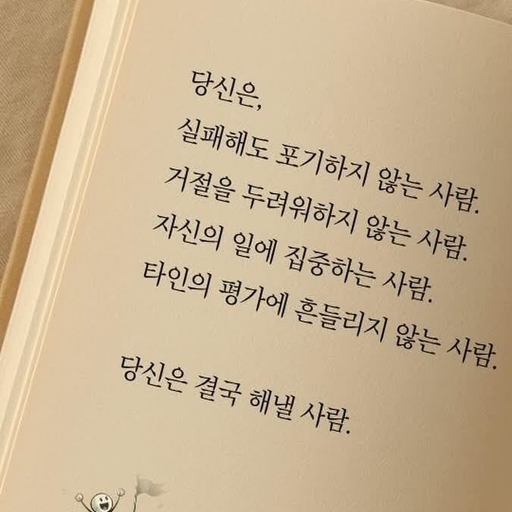 당신은,
실패해도 포기하지 않는 사람.
거절을 두려워하지 않는 사람.
자신의 일에 집중하는 사람.
타인의 평가에 흔들리지 않는 사람.
당신은 결국 해낼 사람.